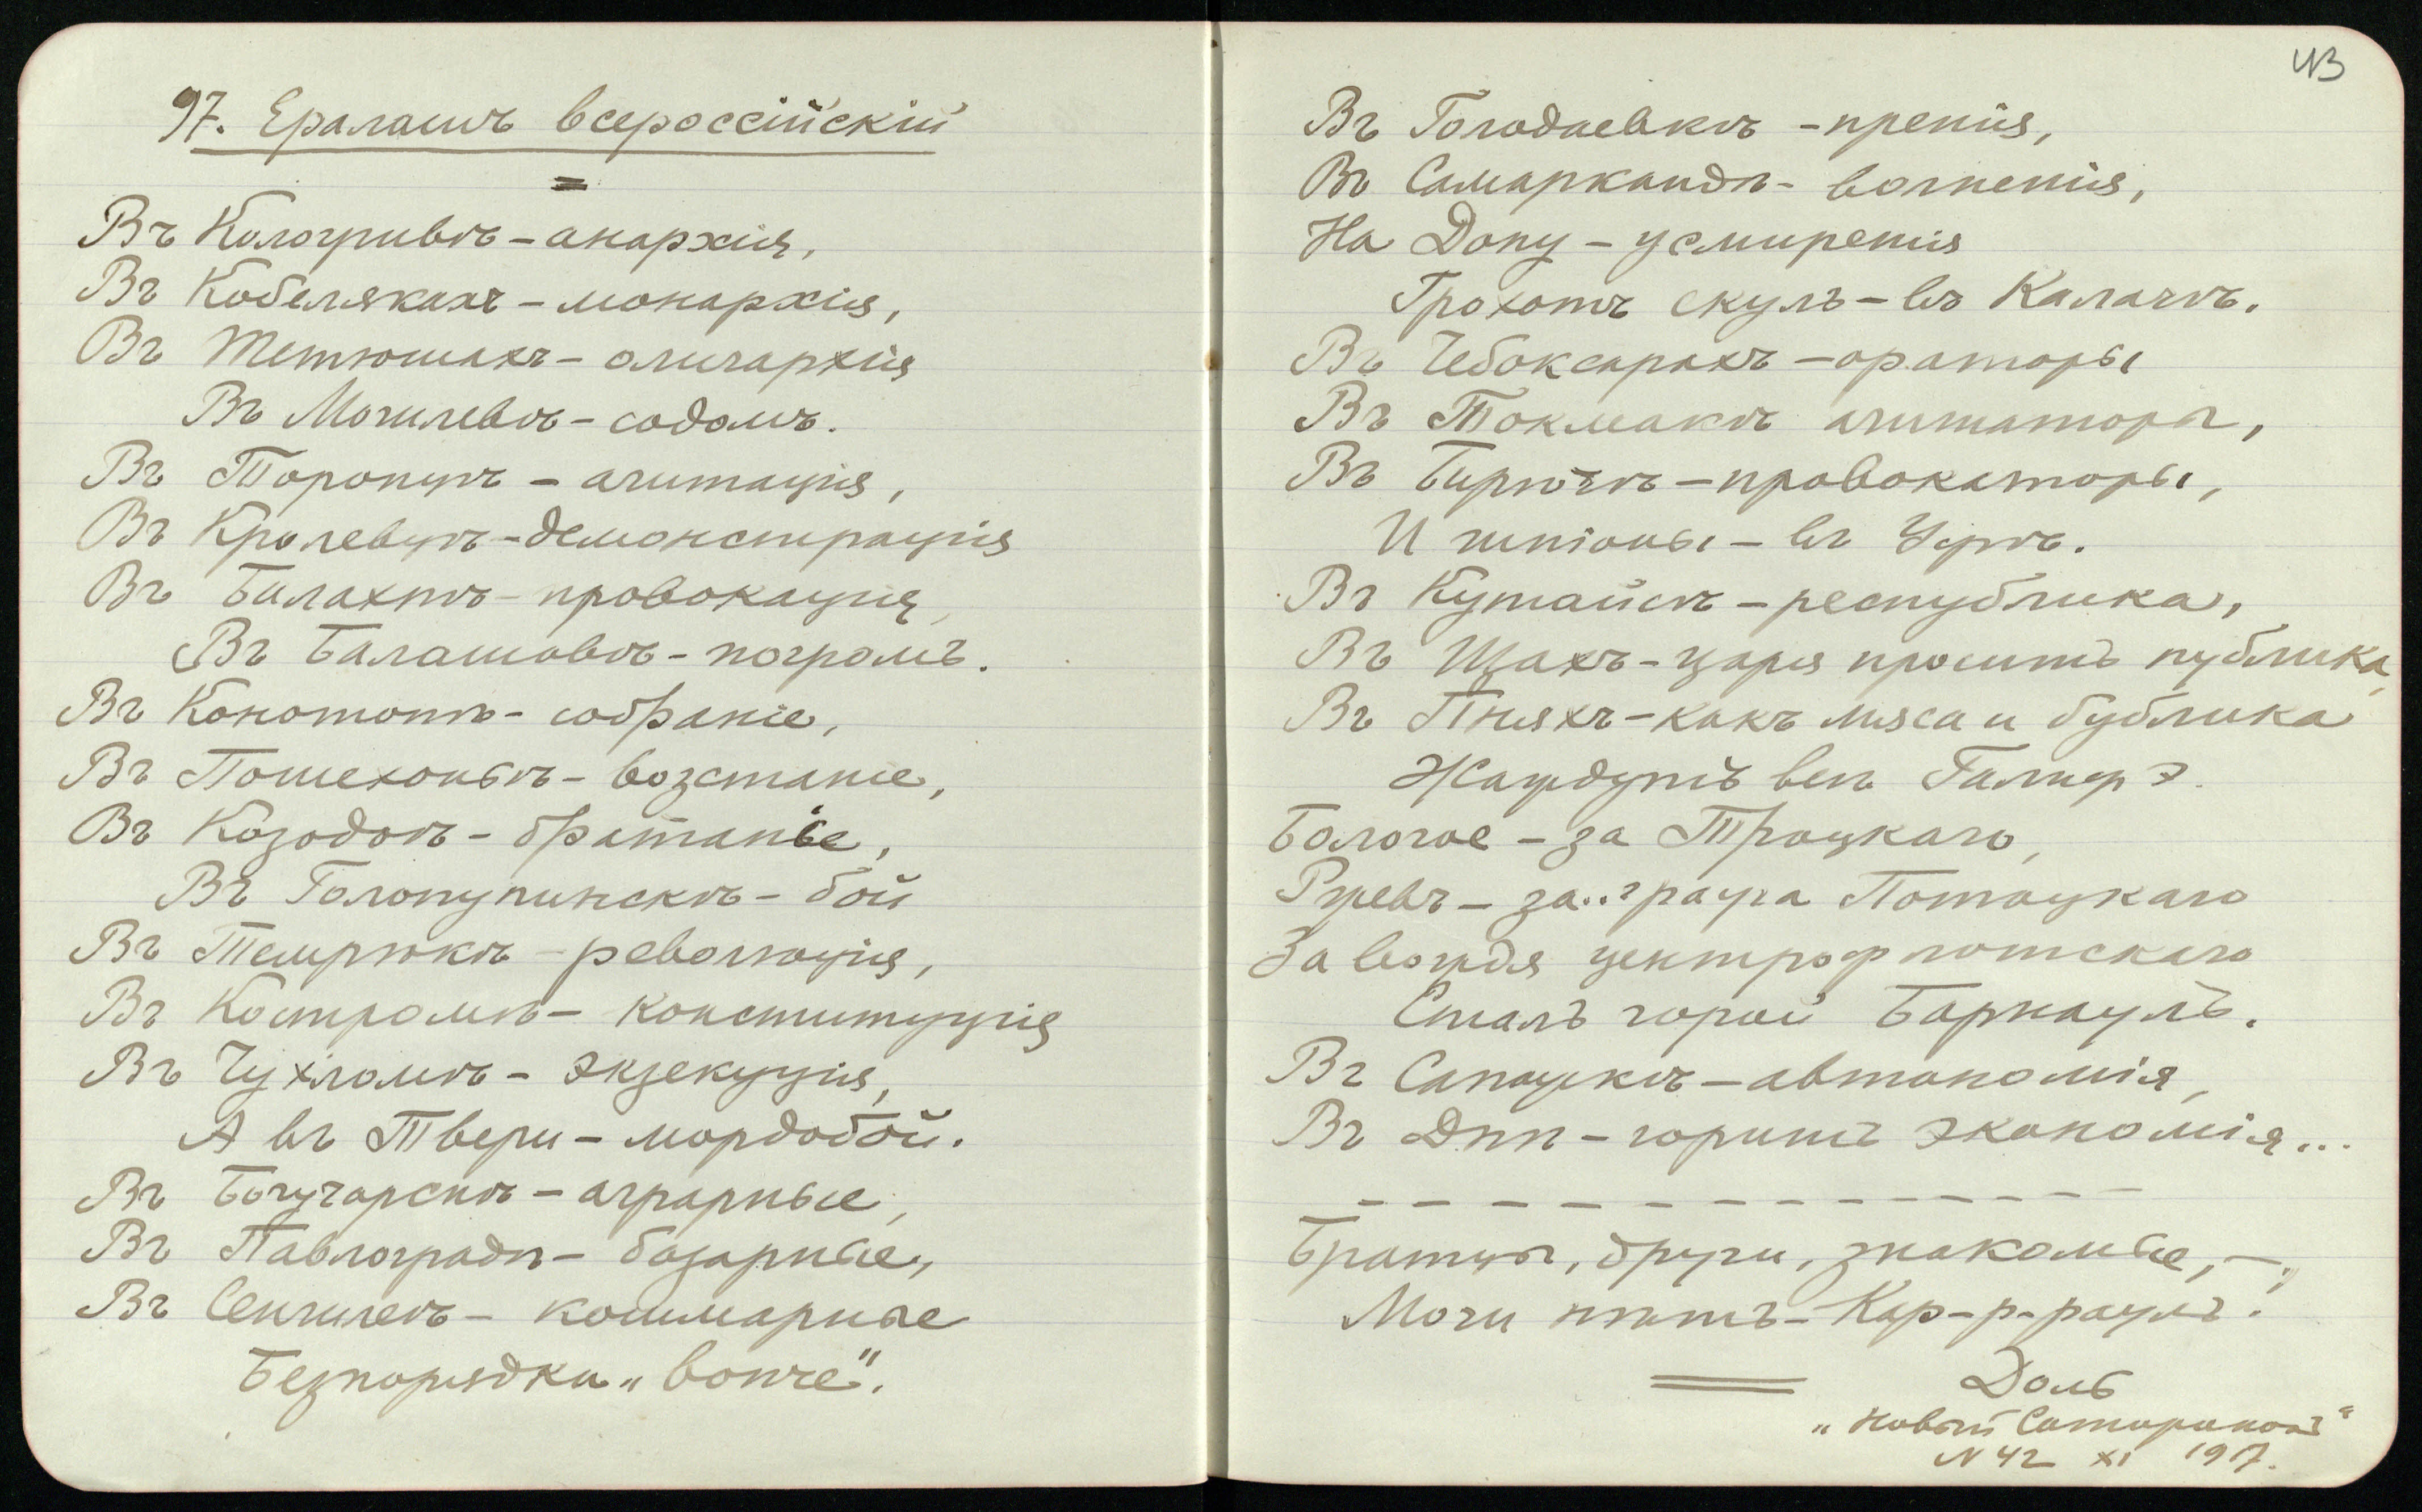 97. Ералашъ всероссійскій
Въ Кологривѣ – анархія,
Въ Кобелякахъ – монархія,
Въ Тетюшахъ – олигархія
Въ Могилевѣ – содомъ.
Въ Торопцѣ – агитація,
Въ Кролевцѣ – демонстрація
Въ Балахнѣ – провокація,
Въ Балашовѣ – погромъ.
Въ Конотопѣ – собраніе,
Въ Пошехоньѣ – возстаніе,
Въ Козодоѣ – братанье,
Въ Голопупинскѣ – бой
Въ Темрюкѣ – революція,
Въ Костромѣ – конституція
Въ Чухломѣ – экзекуція,
А въ Твери – мордобой.
Въ Богучарскѣ – аграрные,
Въ Павлоградѣ – базарные,
Въ Сенгилеѣ – кошмарные
Безпорядки „вопче".
43
Въ Голодаевкѣ – пренія,
Въ Самаркандѣ – волненія,
На Дону – усмиренія
Грохотъ скулъ – въ Калачѣ.
Въ Чебоксарахъ – ораторы
Въ Токмакѣ агитаторы,
Въ Бирючѣ – провокаторы,
И шпіоны – въ Уфѣ.
Въ Кутаисѣ – республика,
Въ Щахъ – царя проситъ публика,
Въ Пняхъ – какъ мяса и бублика
Жаждутъ всѣ Галифэ.
Бологое – за Троцкаго,
Ржевъ – за.. графа Потоцкаго
За вождя центрофлотскаго
Сталъ горой Барнаулъ.
Въ Сапожкѣ – автономія,
Въ Днѣ – горитъ экономія...
– – – – – – – – – – – –
Братцы, други, знакомые, –
Мочи нѣтъ – Кар-р-раулъ!
Доль
„Новый Сатириконъ"
N 42 XI 1917.